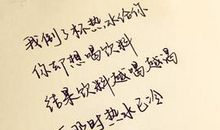 我倒了杯热水给你
你却想喝饮料
结果饮料越喝越渴
再回时热水已冷